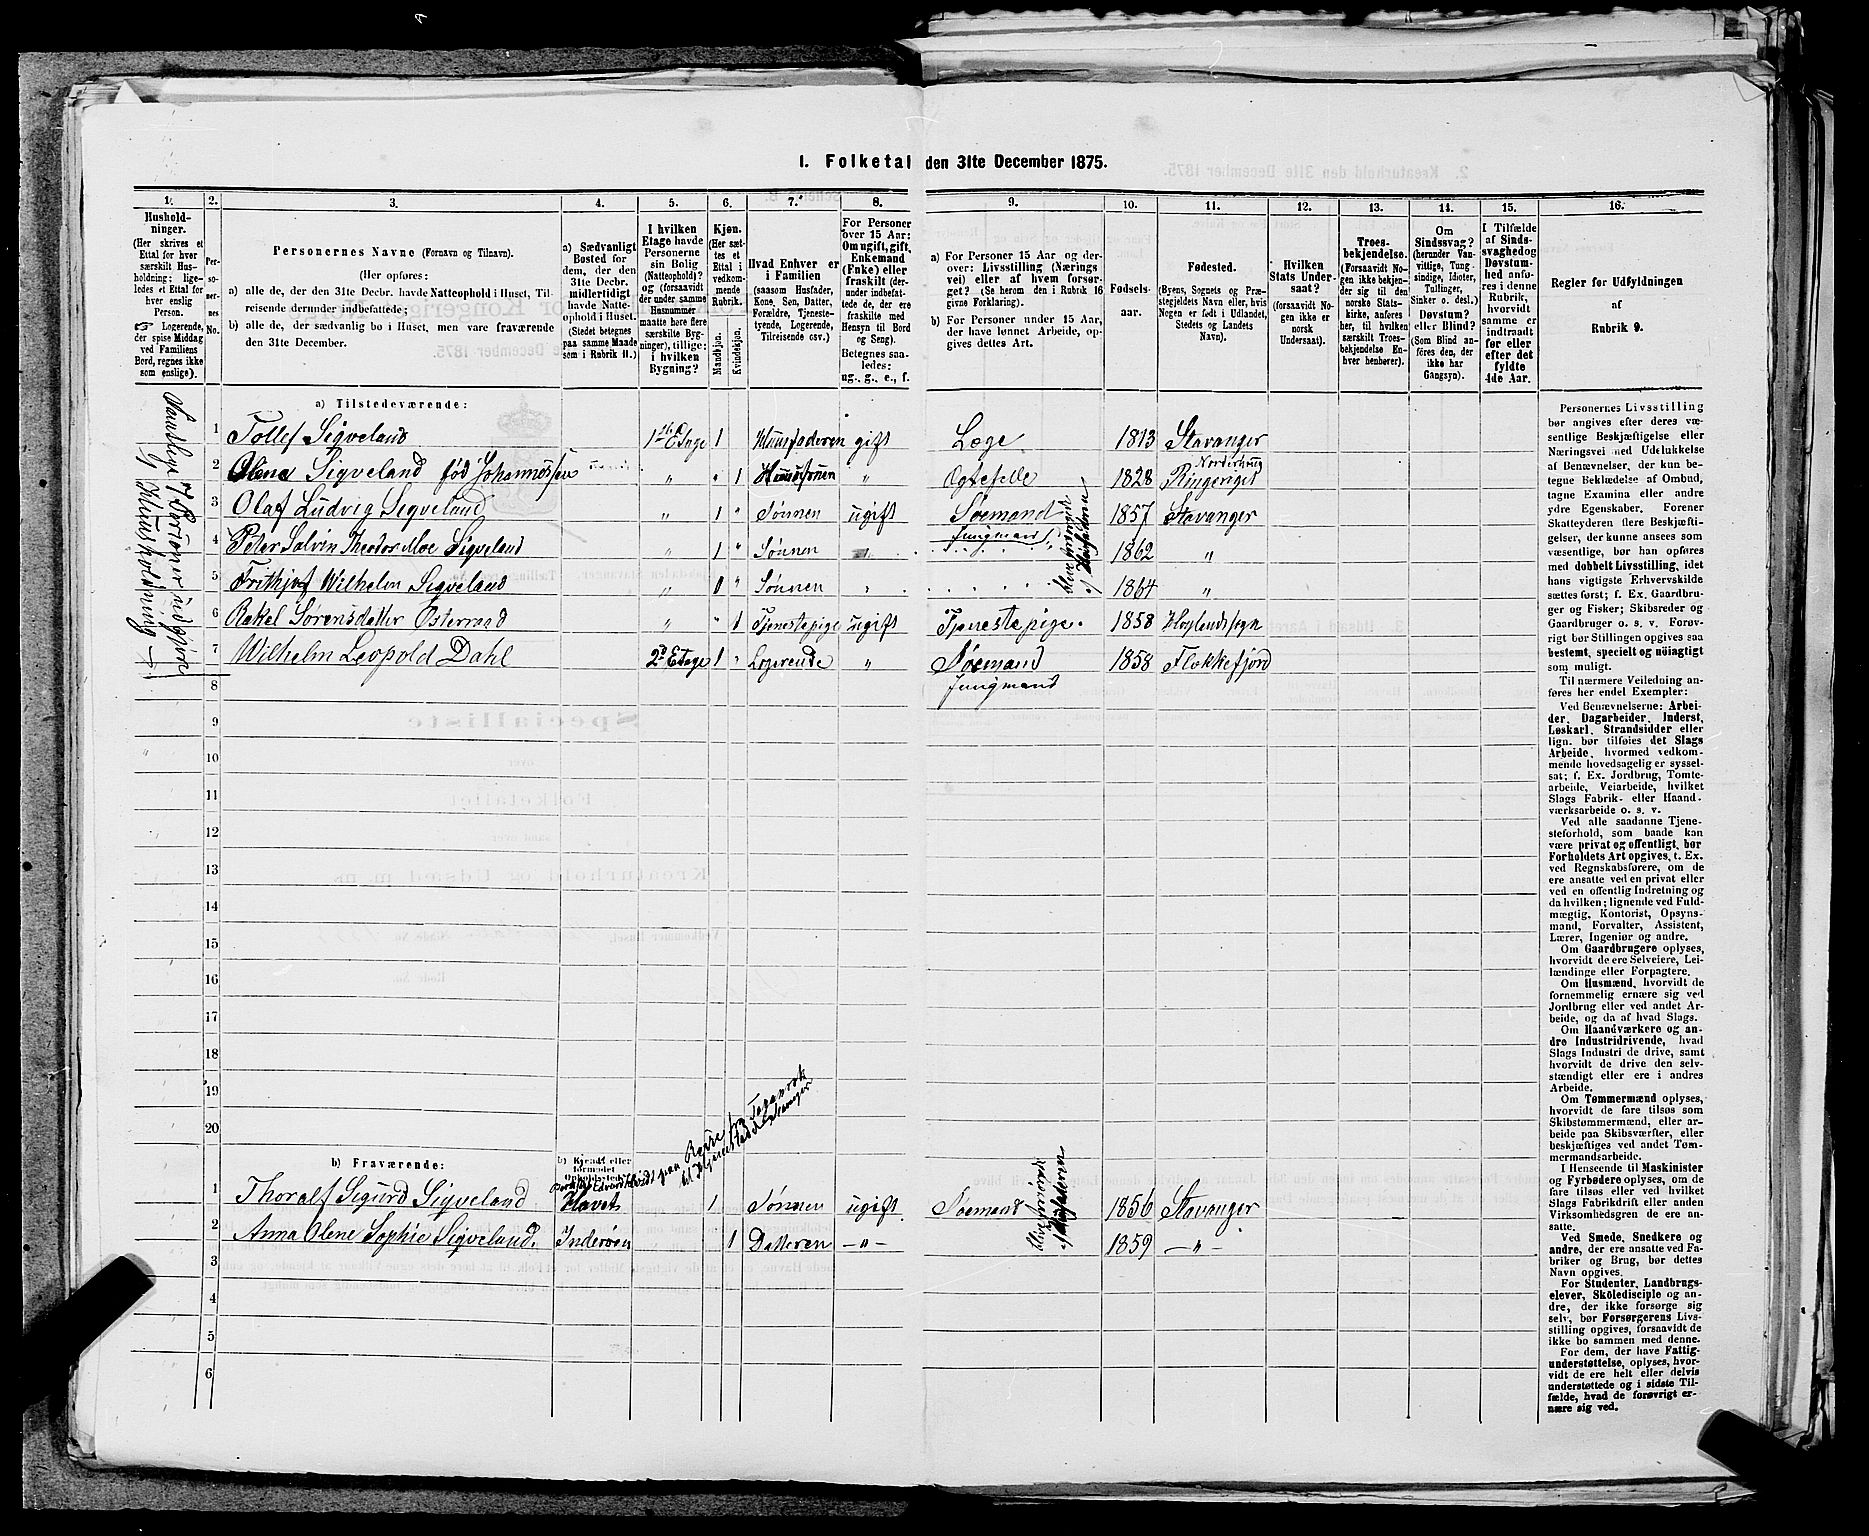 1. Folketal den 31te December 1875.
1. 2. 3. 4. 5. 6. 7. 8. 9. 10. 11. 12. 13. 14. 15. 16.
Hushold-
ninger.
(Her skrives et
Ettal for hver
særskilt Hus-
holdning; lige-
ledes et Ettal for
hver enslig
Person.
Logerende,
der spise Middag
ved Familiens
Bord, regnes ikke
som enslige).
Per-
so-
ner-
nes
No.
Personernes Navne (Fornavn og Tilnavn).
(Her opføres:
a) alle de, der den 31te Decbr. havde Natteophold i Huset, Til-
reisende derunder indbefattede;
b) alle de, der sædvanlig bo i Huset, men vare fraværende
den 31te December.
a) Sædvanligt
Bosted for
dem, der den
31te Decbr.
midlertidigt
havde Natte-
ophold i Huset.
(Stedet betegnes
paa samme Maade
som i Rubrik 11.)
I hvilken
Etage havde
Personerne
sin Bolig
(Natteophold)?
og (forsaavidt
der under samme
Husnummer
maatte høre flere
særskilte Byg-
ninger), tillige:
i hvilken
Bygning?
Kjøn.
(Her sæt-
tes et
Ettal i
vedkom-
mende
Rubrik.
Mandkjøn.
Kvindekjøn.
Hvad Enhver er
i Familien
(saasom Husfader,
Kone, Søn, Datter,
Forældre, Tjeneste-
tyende, Logerende,
Tilreisende osv.)
For Personer
over 15 Aar:
Om ugift, gift,
Enkemand
(Enke) eller
fraskilt (der-
under indbefat-
tede de, der ere
fraskilte med
Hensyn til Bord
og Seng).
Betegnes saa-
ledes:
ug., g., e., f.
a) For Personer 15 Aar og der-
over: Livsstilling (Nærings
vei) eller af hvem forsør-
get? (Se herom den i Rubrik 16
givne Forklaring).
b) For Personer under 15 Aar,
der have lønnet Arbeide, op-
gives dettes Art.
Fødsels-
aar.
Fødested.
(Byens, Sognets og Præ-
stegjeldets Navn eller, hvis
Nogen er født i Udlandet,
Stedets og Landets
Navn).
Hvilken
Stats Under-
saat?
(forsaavidt No-
gen ikke er
norsk
Undersaat).
Troes-
bekjendelse.
(Forsaavidt No-
gen ikke bekjen-
der sig til den
norske Stats-
kirke, anføres
her, til hvilken
særskilt Troes-
bekjendelse En-
hver henhører).
Om
Sindssvag?
(herunder Van-
vittige, Tung-
sindige, Idioter,
Tullinger,
Sinker o. desl.)
Døvstum?
eller Blind?
(Som Blind an-
føres den, der
ikke har
Gangsyn).
I Tilfælde
af Sinds-
svaghed og
Døvstum-
hed anfø-
res i denne
Rubrik,
hvorvidt
samme er
indtraadt
før eller
efter det
fyldte
4de Aar.
Regler for Udfyldningen
af
Rubrik 9.
a) Tilstedeværende:
Samtlige 7 Personer udgjør
1 Huusholdning
1 Tollef Sigveland 1ste Etage 1 Huusfaderen gift Læge 1813 Stavanger
2 Olena Sigveland fød Johannessen " " 1 Huusfruen " Ægtefelle 1828 Norderhoug Ringeriget
3 Olaf Ludvig Sigveland " 1 " Sønnen ugift Sømand Jungmand 1857 Stavanger
4 Peter Salvin Theodor Moe Sigveland " 1 " Sønnen " 1862 "
5 Frithjof Wilhelm Sigveland " 1 " Sønnen " 1864 "
blive forsørget
af Huusfaderen
6 Rakel Sørensdatter Osteraad " " 1 Tjenestepige ugift Tjenestepige. 1858 Høylandsogn
7 Wilhelm Leopold Dahl 2d Etage 1 " Logerende " Søemand 1858 Flekkefjord
Jungmand
8
9
10
11
12
13
14
15
16
17
18
19
20
b) Fraværende:
b) Kjendt eller
formodet
Opholdssted
paa Reise fra Taganrok
til Hjemstedet Stavanger
1 Thoralf Sigurd Sigveland Havet 1 Sønnen ugift Søemand 1856 Stavanger
2 Anna Olene Sophie Sigveland. Inderøen 1 Datteren —"— 1859 —"—
blive forsørget
af Huusfaderen
3
4
5
6
Personernes Livsstilling
bør angives efter deres væ-
sentlige Beskjæftigelse eller
Næringsvei med Udelukkelse
af Benævnelser, der kun be-
tegne Beklædelse af Ombud,
tagne Examina eller andre
ydre Egenskaber. Forener
Skatteyderen flere Beskjæfti-
gelser, der kunne ansees som
væsentlige, bør han opføres
med dobbelt Livsstilling, idet
hans vigtigste Erhvervskilde
sættes først; f. Ex. Gaardbru-
ger og Fisker; Skibsreder og
Gaardbruger o. s. v. Forøv-
rigt bør Stillingen opgives saa
bestemt, specielt og nøiagtigt
som muligt.
Til nærmere Veiledning an-
føres her endel Exempler:
Ved Benævnelserne: Arbei-
der, Dagarbeider, Inderst,
Løskarl, Strandsidder eller
lign. bør tilføies det Slags
Arbeide, hvormed vedkom-
mende hovedsagelig er syssel-
sat; f. Ex. Jordbrug, Tomte-
arbeide, Veiarbeide, hvilket
Slags Fabrik- eller Haand-
værksarbeide o. s. v.
Ved alle saadanne Tjene-
steforhold, som baade kan
være privat og offentligt, bør
Forholdets Art opgives, t. Ex.
ved Regnskabsførere, om de
ere ansatte ved en privat eller
ved en offentlig Indretning og
da hvilken; lignende ved Fuld-
mægtig, Kontorist, Opsyns-
mand, Forvalter, Assistent,
Lærer, Ingeniør og andre.
Om Gaardbrugere oplyses,
hvorvidt de ere Selveiere, Lei-
lændinge eller Forpagtere.
Om Husmænd, hvorvidt de
fornemmelig ernære sig ved
Jordbrug eller ved andet Ar-
beide, og da af hvad Slags.
Om Haandværkere og an-
dre Industridrivende, hvad
Slags Industri de drive, samt
hvorvidt de drive den selv-
stændigt eller ere i andres
Arbeide.
Om Tømmermænd oplyses,
hvorvidt de fare tilsøs som
Skibstømmermænd, eller ar-
beide paa Skibsværfter, eller
beskjæftiges ved andet Tøm-
mermandsarbeide.
I Henseende til Maskinister
og Fyrbødere oplyses, om de
fare tilsøs eller ved hvilket
Slags Fabrikdrift eller anden
Virksomhedsgren de ere an-
satte.
Ved Smede, Snedkere og
andre, der ere ansatte ved Fa-
briker og Brug, bør dettes
Navn opgives.
For Studenter, Landbrugs-
elever, Skoledisciple og an-
dre, der ikke forsørge sig
selv, bør Forsørgerens Livs-
stilling opgives, forsaavidt de
ikke bo sammen med denne.
For dem, der have Fattig-
understøttelse, oplyses, hvor-
vidt de ere helt eller delvis
understøttede og i sidste Til-
fælde, hvad de forøvrigt er-
nære sig ved.